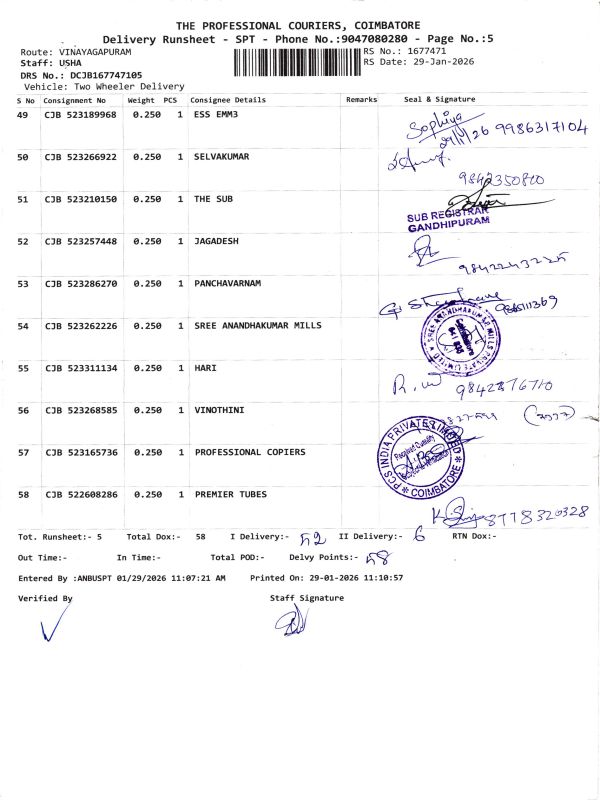 THE PROFESSIONAL COURIERS, COIMBATORE
Delivery Runsheet - SPT - Phone No.:9047080280 - Page No.:5
Route: VINAYAGAPURAM RS No.: 1677471
Staff: USHA RS Date: 29-Jan-2026
DRS No.: DCJB167747105
Vehicle: Two Wheeler Delivery
S No Consignment No Weight PCS Consignee Details Remarks Seal & Signature
49 CJB 523189968 0.250 1 ESS EMM3 Sophiya
29/1/26 9986317104
50 CJB 523266922 0.250 1 SELVAKUMAR
9842350800
51 CJB 523210150 0.250 1 THE SUB
SUB REGISTRAR
GANDHIPURAM
52 CJB 523257448 0.250 1 JAGADESH
53 CJB 523286270 0.250 1 PANCHAVARNAM
54 CJB 523262226 0.250 1 SREE ANANDHAKUMAR MILLS
55 CJB 523311134 0.250 1 HARI
9842876710
56 CJB 523268585 0.250 1 VINOTHINI
57 CJB 523165736 0.250 1 PROFESSIONAL COPIERS
PCS INDIA PRIVATE LIMITED
COIMBATORE
58 CJB 522608286 0.250 1 PREMIER TUBES
8778320328
Tot. Runsheet:- 5 Total Dox:- 58 I Delivery:- 52 II Delivery:- 6 RTN Dox:-
Out Time:- In Time:- Total POD:- Delvy Points:- 58
Entered By :ANBUSPT 01/29/2026 11:07:21 AM Printed On: 29-01-2026 11:10:57
Verified By Staff Signature